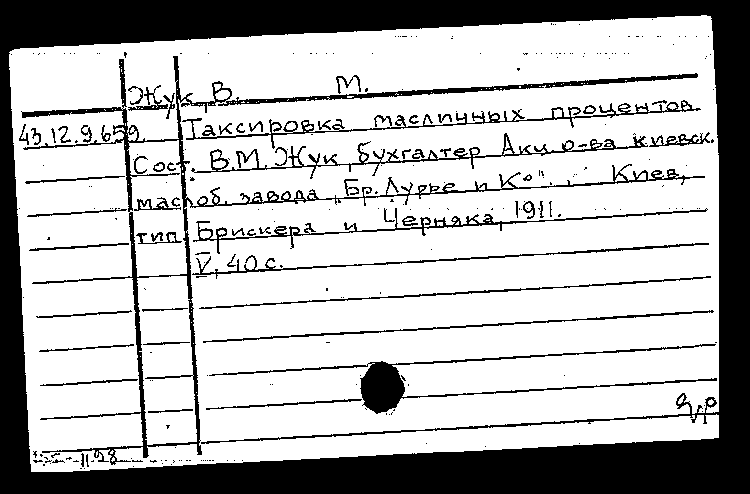 Жук, В. М.
43.12.9.659. Таксировка масличных процентов.
Сост. В.М. Жук, бухгалтер Акц о-ва киевск.
маслоб. завода „Бр. Лурье и К°". Киев,
тип. Брискера и Черняка, 1911.
V, 40 с.